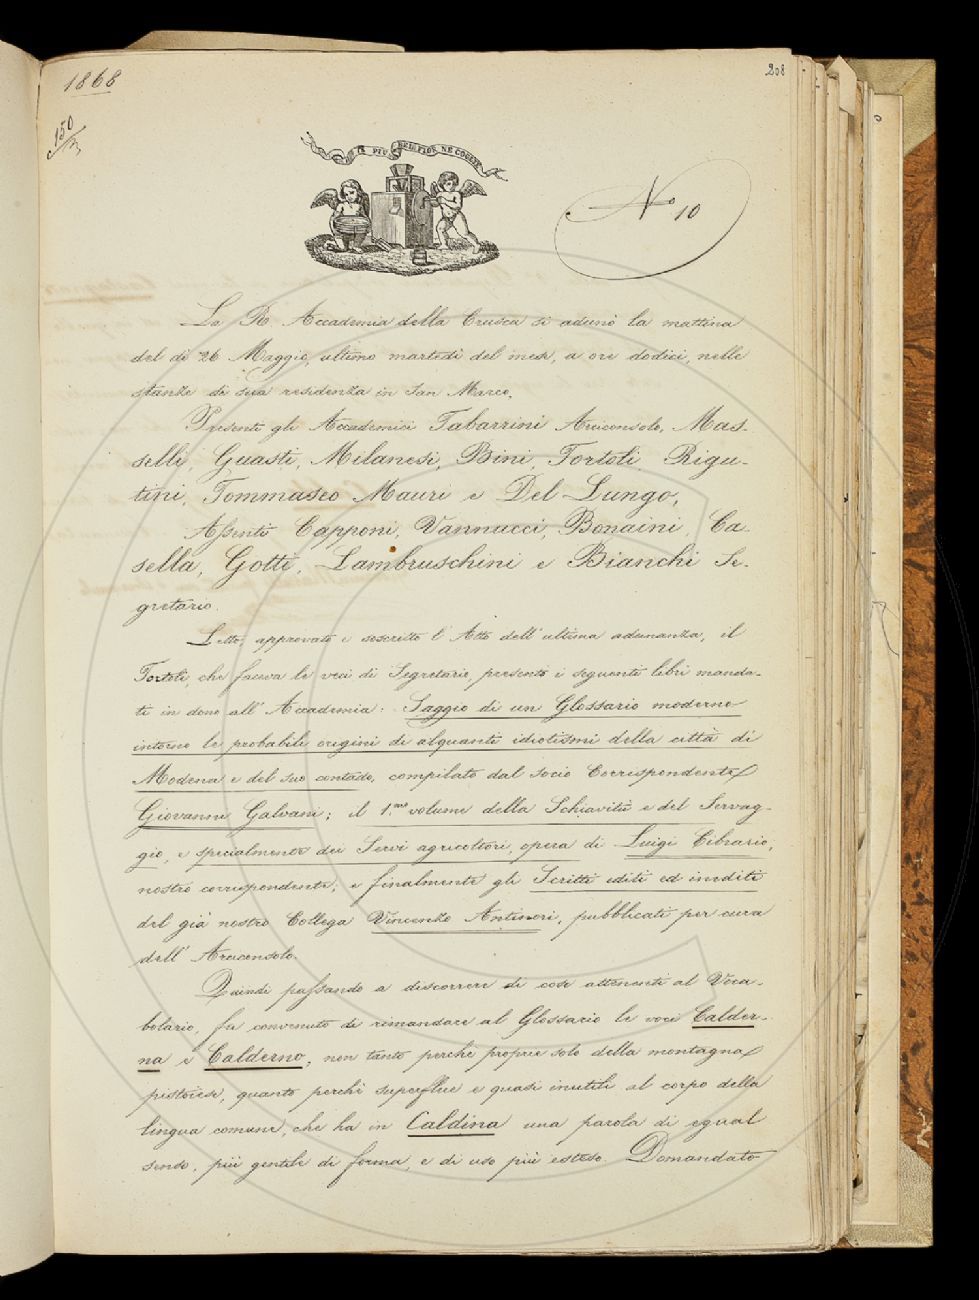 1868
208
150
IL PIÙ BEL FIOR NE COGLIE
N.o 10
La R. Accademia della Crusca si adunò la mattina
del dì 26 Maggio, ultimo martedì del mese, a ore dodici, nelle
stanze di sua residenza in San Marco.
Presenti gli Accademici Tabarrini Arciconsolo, Mas-
selli, Guasti, Milanesi, Bini, Tortoli Rigu-
tini, Tommaseo Mauri e Del-Lungo,
Assenti Capponi, Vannucci, Bonaini, Ca
sella, Gotti, Lambruschini e Bianchi Se-
gretario.
Letto, approvato e soscritto l'Atto dell'ultima adunanza, il
Tortoli, che faceva le veci di Segretario, presentò i seguenti libri manda-
ti in dono all'Accademia: Saggio di un Glossario moderno
intorno le probabili origini di alquanti idiotismi della città di
Modena e del suo contado, compilato dal socio Corrispondente
Giovanni Galvani; il 1.mo volume della Schiavitù e del Servag-
gio, e specialmente dei Servi agricoltori, opera di Luigi Cibrario,
nostro corrispondente; e finalmente gli Scritti editi ed inediti
del già nostro Collega Vincenzo Antinori, pubblicati per cura
dell'Arciconsolo.
Quindi passando a discorrere di cose attenenti al Voca-
bolario, fu convenuto di rimandare al Glossario le voci Calder-
na e Calderno, non tanto perchè proprie solo della montagna
pistoiese, quanto perchè superflue e quasi inutili al corpo della
lingua comune, che ha in Caldina una parola di egual
senso, più gentile di forma, e di uso più esteso. Domandato